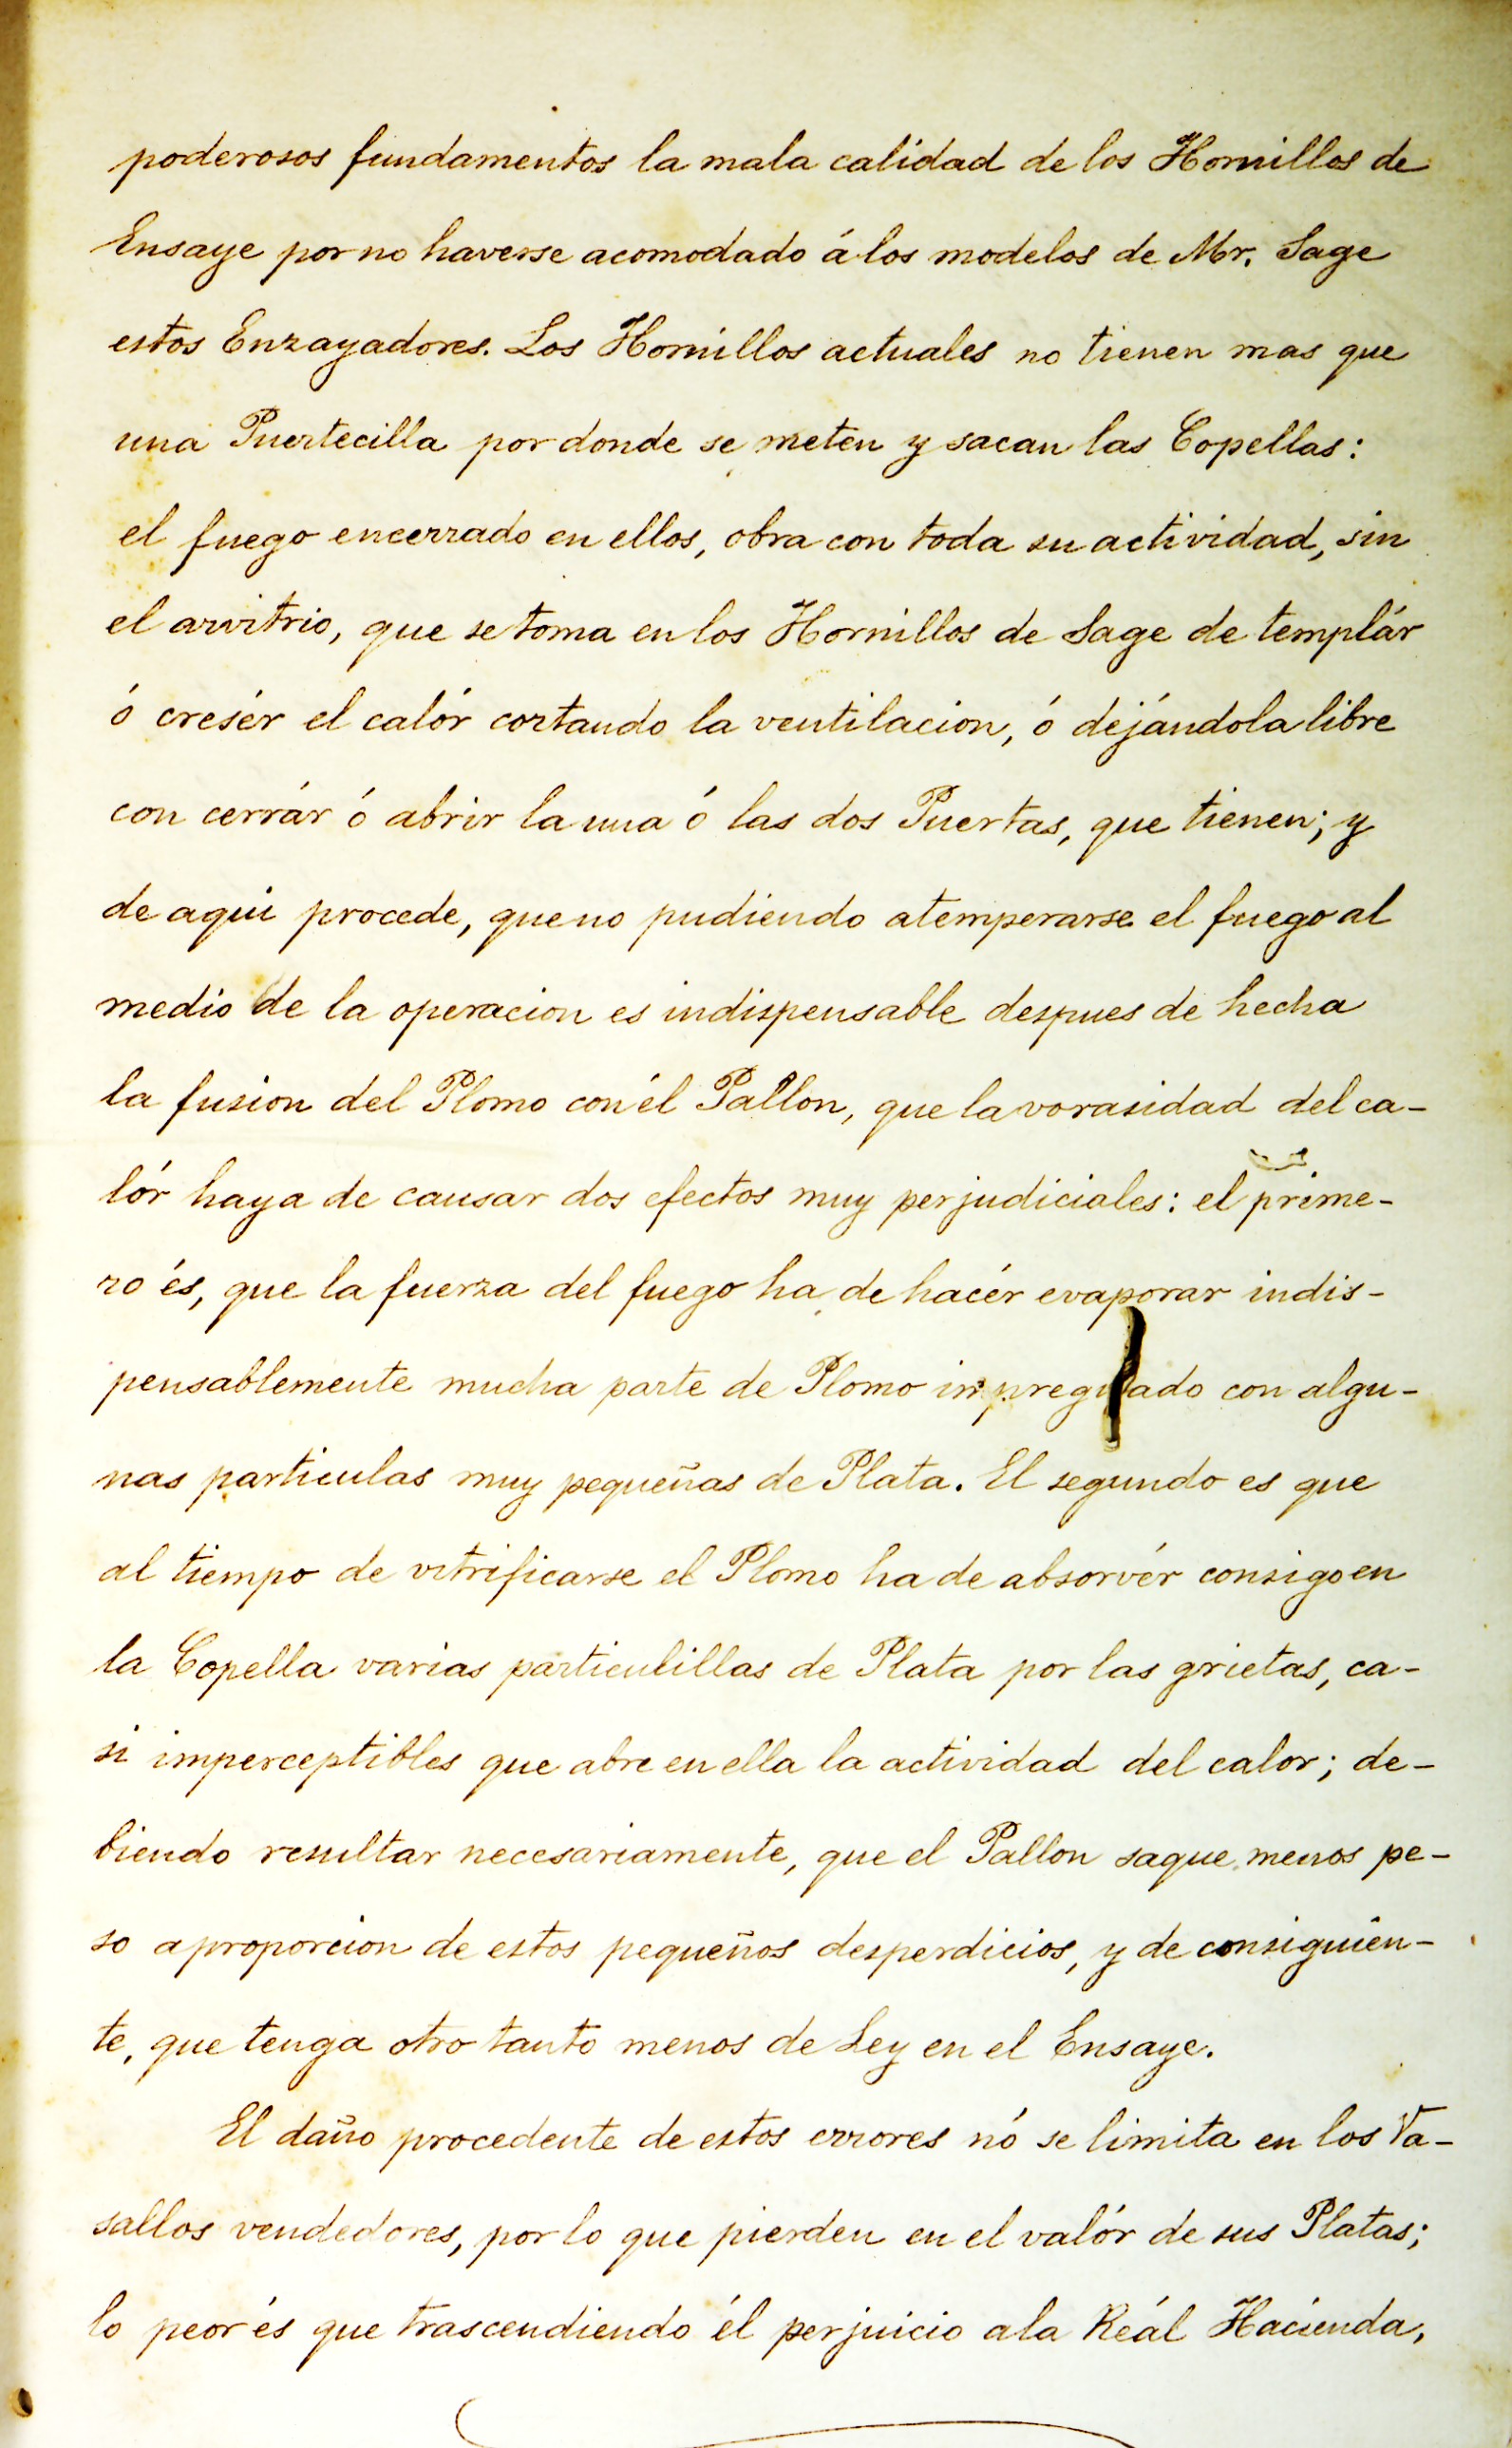 poderosos fundamentos la mala calidad de los Hornillos de
Ensaye por no haverse acomodado á los modelos de Mr. Sage
estos Enzayadores. Los Hornillos actuales no tienen mas que
una Puertecilla por donde se meten y sacan las Copellas:
el fuego encerrado en ellos, obra con toda su actividad, sin
el arvitrio, que se toma en los Hornillos de Sage de templár
ó cresér el calór cortando la ventilacion, ó dejándola libre
con cerrár ó abrir la una ó las dos Puertas, que tienen; y
de aqui procede, que no pudiendo atemperarse el fuego al
medio de la operacion es indispensable despues de hecha
la fusion del Plomo con él Pallon, que la vorasidad del ca-
lór haya de causar dos efectos muy perjudiciales: el prime-
ro és, que la fuerza del fuego ha de hacér evaporar indis-
pensablemente mucha parte de Plomo impregnado con algu-
nas particulas muy pequeñas de Plata. El segundo es que
al tiempo de vitrificarse el Plomo ha de absorvér consigo en
la Copella varias particulillas de Plata por las grietas, ca-
si imperceptibles que abre en ella la actividad del calor; de-
biendo resultar necesariamente, que el Pallon saque menos pe-
so a proporcion de estos pequeños desperdicios, y de consiguien-
te, que tenga otro tanto menos de Ley en el Ensaye.
El daño procedente de estos errores nó se limita en los Va-
sallos vendedores, por lo que pierden en el valór de sus Platas;
lo peor és que trascendiendo él perjuicio a la Reál Hacienda,